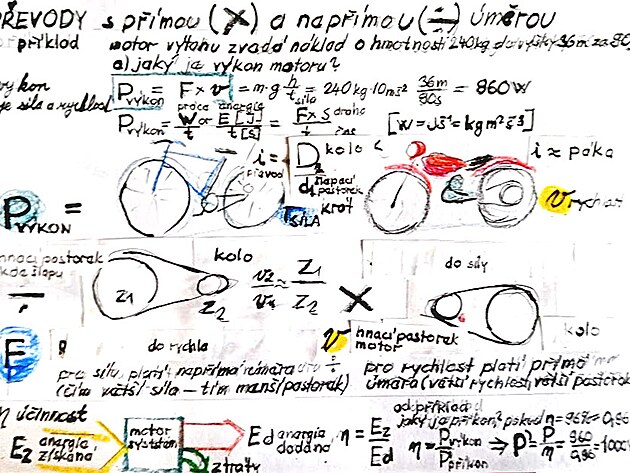 PŘEVODY s přímou (×) a napřímou (÷) úměrou
příklad motor výtahu zvadá náklad o hmotnosti 240kg do výšky 36m za 80
a) jaký je výkon motoru?
výkon
je síla a rychlost
P výkon = F × v = m·g· h/t = 240 kg·10 ms² 36m/80s = 860 W
práce energie síla dráha
P výkon = W/t or E [J]/t [s] = F × s/t
čas
[W = Js¹ = kgm²s³]
i = převod
D₂ kolo
d₁ hnací pastorek
i ≈ páka
P VÝKON =
F SÍLA krát v rychlost
hnací pastorek
kde šlapu
kolo
do síly
Z1
Z2
v₂ ≈ Z1
Z2
×
÷
F
v
hnací pastorek
motor
kolo
do rychla
pro sílu platí napřímá úměra ÷
(čím větší síla – tím manší pastorek)
pro rychlost platí přímo
úměra (větší rychlost, větší pastorek
η účinnost
E₂ energie získaná
motor systém
Ed energie dodaná
ztráty
η = E₂/Ed
od příklad a
jaký je příkon? pokud η = 96% = 0,96
η = P výkon/P příkon ⇒ P = P/η = 960/0,96 = 1000